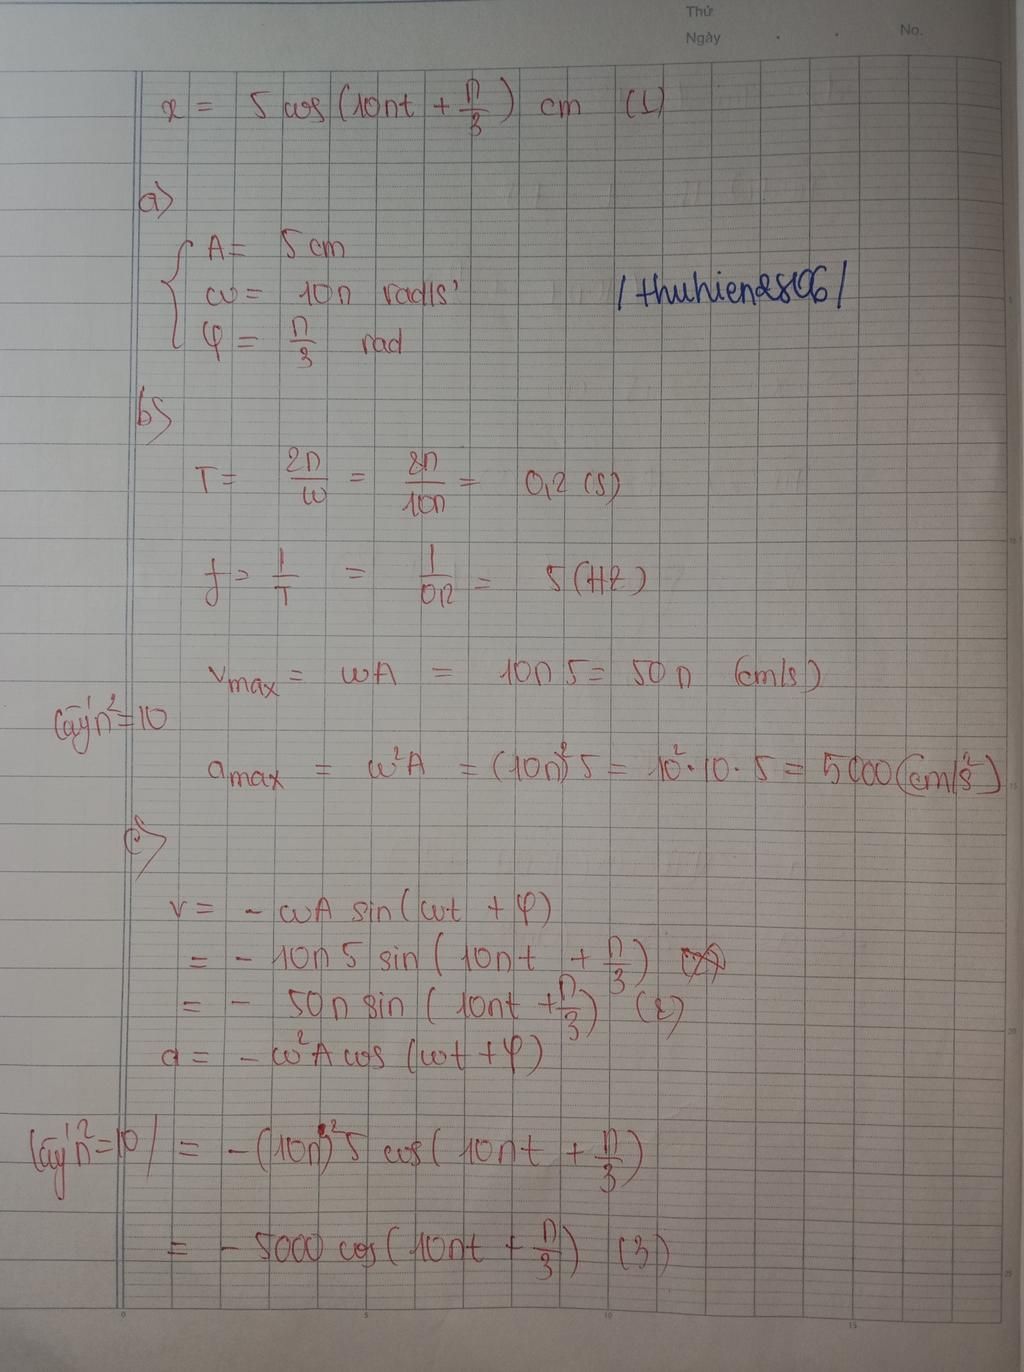 Thứ
Ngày . . No.
x = 5 cos(10πt + π/3) cm (1)
a)
A = 5 cm
ω = 10π rad/s
/thuhien2806/
φ = π/3 rad
b)
T = 2π/ω = 2π/10π = 0,2 (s)
f = 1/T = 1/0,2 = 5 (Hz)
vmax = ωA = 10π 5 = 50π (cm/s)
lấy π² = 10
amax = ω²A = (10π)² 5 = 10² . 10 . 5 = 5000 (cm/s²)
c)
v = - ωA sin(ωt + φ)
= - 10π 5 sin(10πt + π/3)
= - 50π sin(10πt + π/3) (2)
a = - ω²A cos(ωt + φ)
lấy π² = 10 / = -(10π)² 5 cos(10πt + π/3)
= - 5000 cos(10πt + π/3) (3)
0 5 10 15